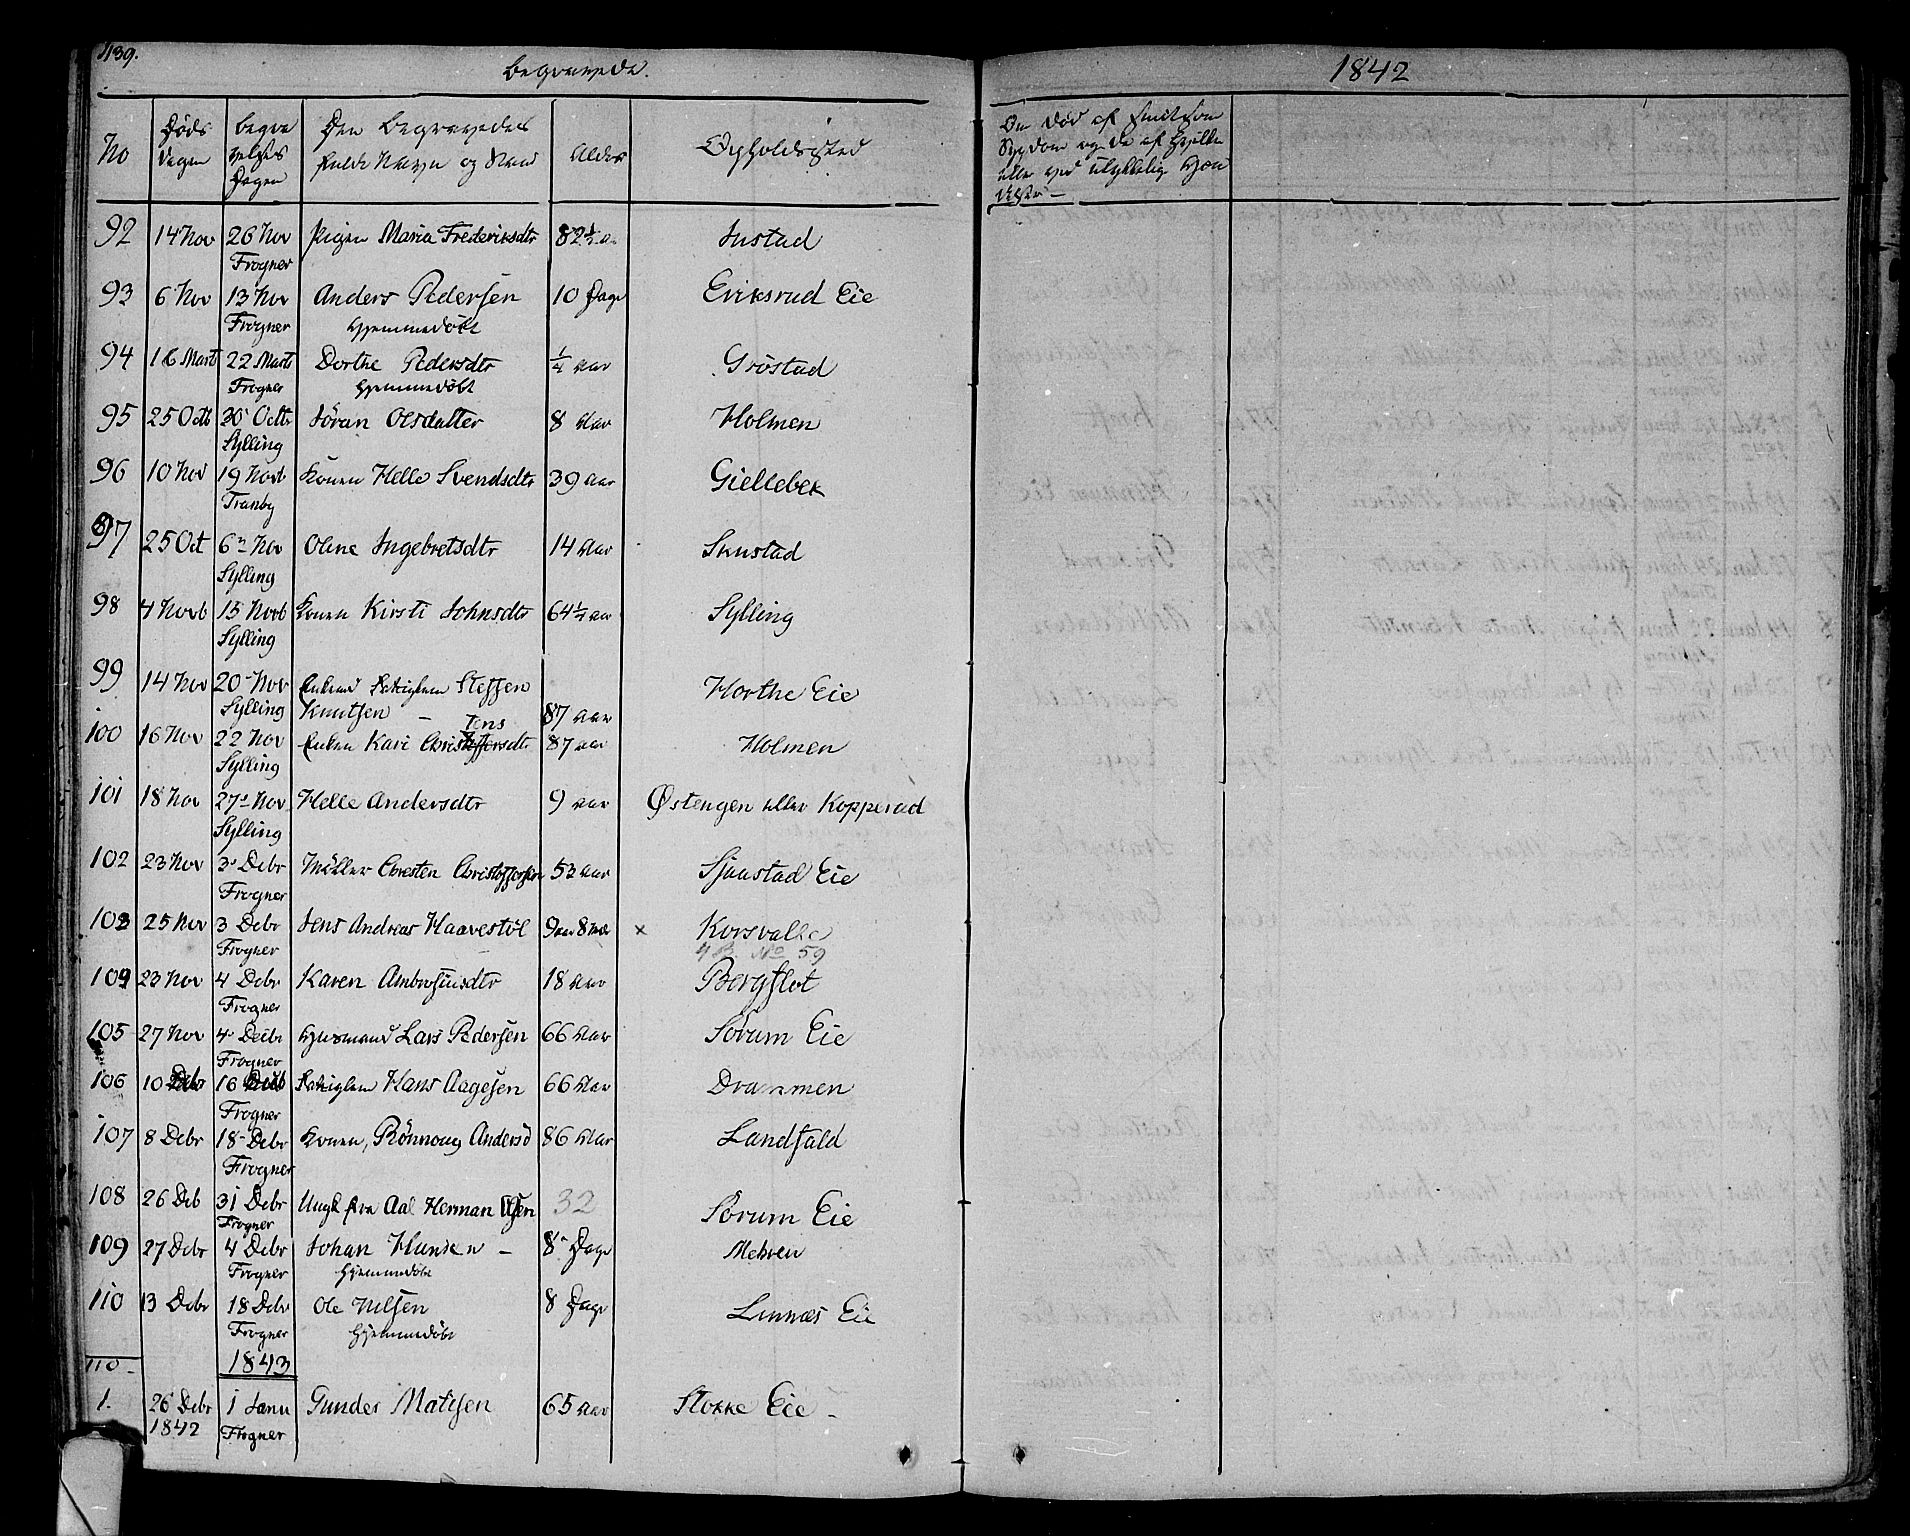 439.
Begravede.
1842
No
Døds dagen
Begra velses Dagen
Den Begravedes fulde Navn og Stand
Alder
Opholdssted
Om død af smitsom
Sygdom og da af hvilken
eller ved ulykkelig Hæn
delse. —
92 14 Nov 26 Nov Pigen Maria Frederiksdtr 82½ Justad
Frogner
93 6 Nov 13 Nov Anders Pedersen 10 Dage Eriksrud Eie
Frogner Hjemmedøbt
94 16 Marts 22 Marts Dorthe Pedersdtr ¼ Aar Grøstad
Frogner Hjemmedøbt
95 25 Octb 30 Octb Søran Olsdatter 8 Aar Holmen
Sylling
96 10 Nov 19 Novb Konen Helle Svendsdtr 39 Aar Gjellebek
Tranby
97 25 Oct 6 Nov Oline Ingebretsdtr 14 Aar Skustad
Sylling
98 4 Novb 13 Novb Konen Kirsti Johnsdtr 64½ Aar Sylling
Sylling
99 14 Nov 20 Nov Enkemd Steffen Horthe Eie
Sylling Knutsen — 87 Aar
Jens
100 16 Nov 22 Nov Enken Kari Christoffersdtr 87 Aar Holmen
Sylling
101 18 Nov 27 Nov Helle Andersdtr 9 Aar Østengen eller Kopperud
Sylling
102 23 Nov 3 Debr Møller Chresten Christoffersen 53 Aar Sjaastad Eie
Frogner
103 25 Nov 3 Debr Jens Andreas Haavestøl 9 Aar 8 Mdr × Korsvalle
Frogner No 59
104 23 Nov 4 Debr Karen Ambrosiusdtr 18 Aar Bergflot
Frogner
105 27 Nov 4 Decbr Husmand Lars Pedersen 66 Aar Sørum Eie
Frogner
106 10 Debr 16 Hans Aagesen 66 Aar Drammen
Frogner
107 8 Debr 18 Debr Konen, Rønnoug Andersd 86 Aar Landfald
Frogner
108 26 Deb 31 Debr Ungk fra Aal Herman 32 Sørum Eie
Frogner
109 27 Debr 4 Debr Johan Hansen — 8 Dage Mehren
Frogner Hjemmedøbt
110 13 Debr 18 Debr Ole Nilsen 8 Dage Linnæs Eie
Frogner Hjemmedøbt
110 1843
1. 26 Debr 1 Janu Gunder Matisen 65 Aar Stokke Eie —
1842 Frogner